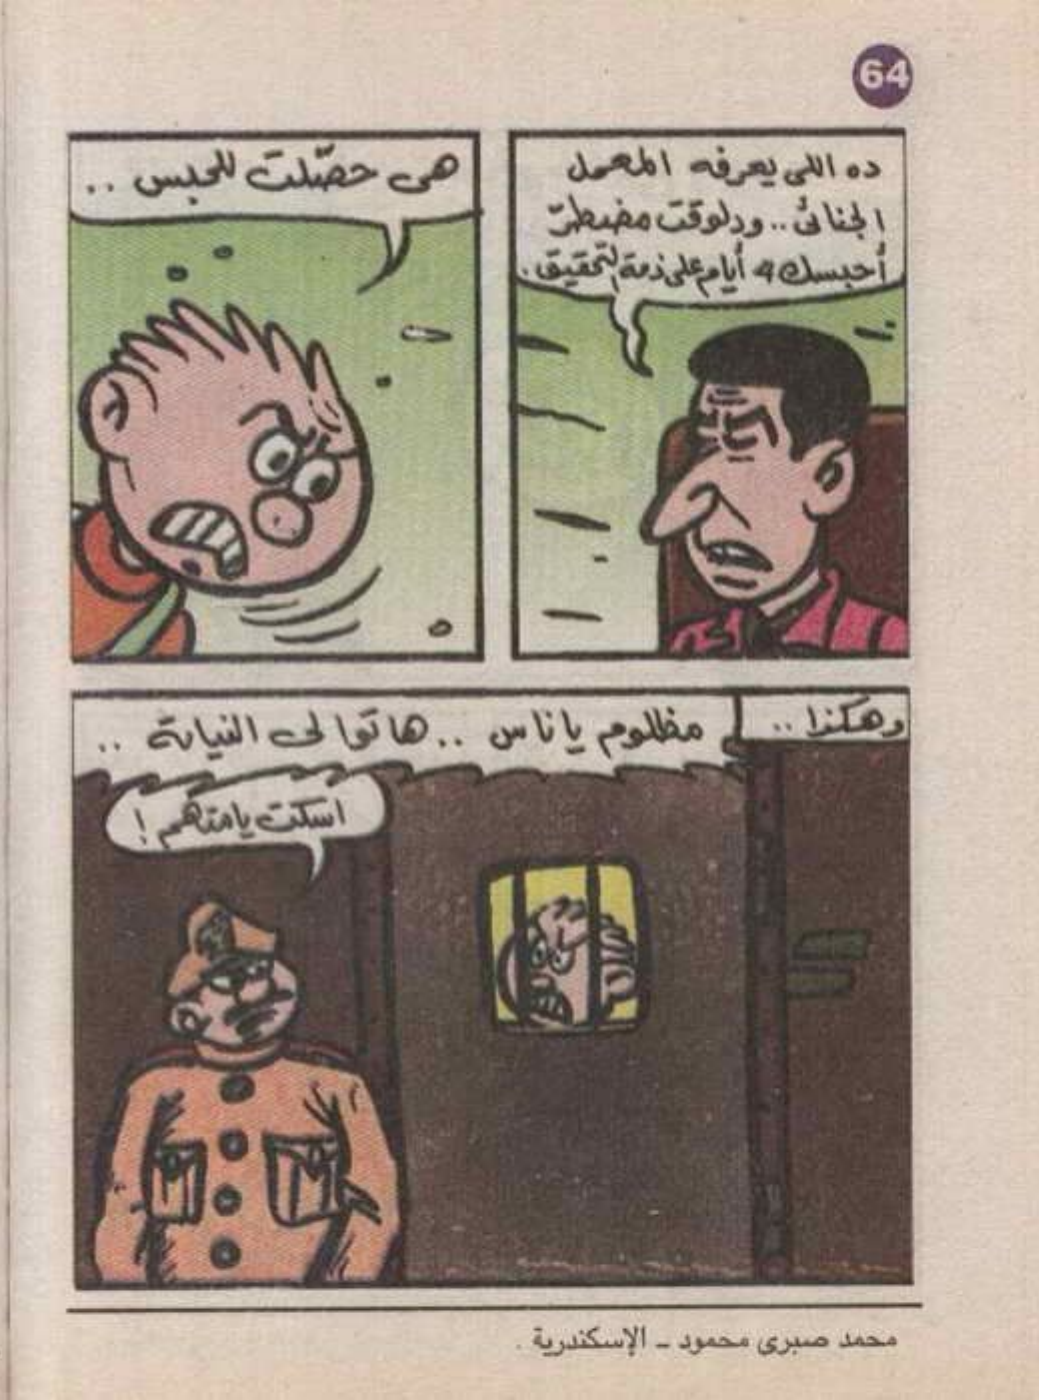 64
ده اللى يعرفه المعمل
الجنائى.. ودلوقت مضطرّ
أحبسك ٤ أيام على ذمة التحقيق.
هى حصّلت للحبس ..
وهكذا ..
مظلوم يا ناس .. هاتوا لى النيابة ..
اسكت يا متهم !
محمد صبرى محمود ـ الإسكندرية .